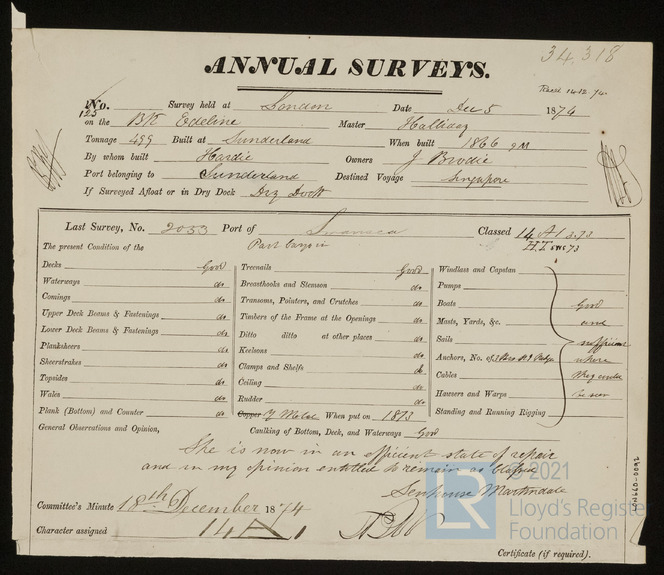 34,318
ANNUAL SURVEYS.
Read 14.12.74.
No. 125 Survey held at London Date Dec 5 1874
on the Bk Edeline Master Halliday
Tonnage 499 Built at Sunderland When built 1866 9M
By whom built Hardie Owners J Brodie
Port belonging to Sunderland Destined Voyage Singapore
If Surveyed Afloat or in Dry Dock Dry Dock
Last Survey, No. 2033 Port of Swansea Classed 14 A1 3.73
H.T. 73
The present Condition of the Part Cargo in
Decks Good Treenails Good Windlass and Capstan
Waterways do Breasthooks and Stemson do Pumps
Comings do Transoms, Pointers, and Crutches do Boats Good
Upper Deck Beams & Fastenings do Timbers of the Frame at the Openings do Masts, Yards, &c. and
Lower Deck Beams & Fastenings do Ditto ditto at other places do Sails sufficient
Planksheers do Keelsons do Anchors, No. of where
Sheerstrakes do Clamps and Shelfs do Cables they could
Topsides do Ceiling do Hawsers and Warps be seen
Wales do Rudder do Standing and Running Rigging
Plank (Bottom) and Counter do Copper Y Metal When put on 1873
General Observations and Opinion, Caulking of Bottom, Deck, and Waterways Good
She is now in an efficient state of repair
and in my opinion entitled to remain as Classed
Senhouse Martindale
Committee's Minute 18th December 1874
Character assigned 14 A 1
Certificate (if required).
© 2021
LR
Lloyd's Register
Foundation